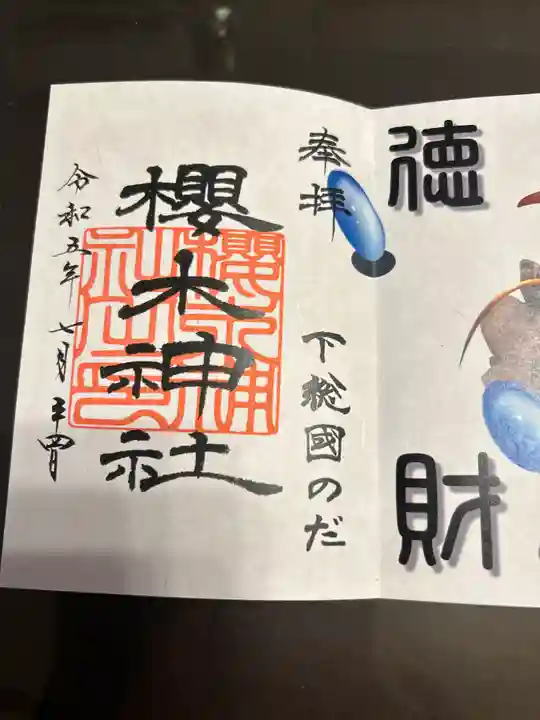 徳
財
奉拝
下総國のだ
櫻木神社
櫻木神社印
令和五年七月二十四日